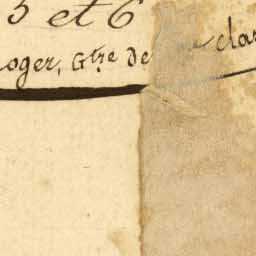 5 et 6
oger, Gtre de clar